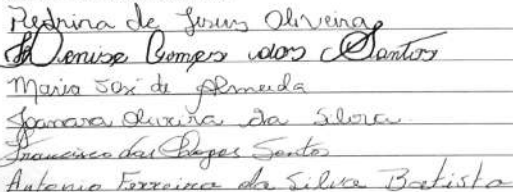 Pedrina de Jesus Oliveira
Denise Gomes dos Santos
Maria José de Almeida
Joamara Oliveira da Silva
Francisco das Chagas Santos
Antonio Ferreira da Silva Batista